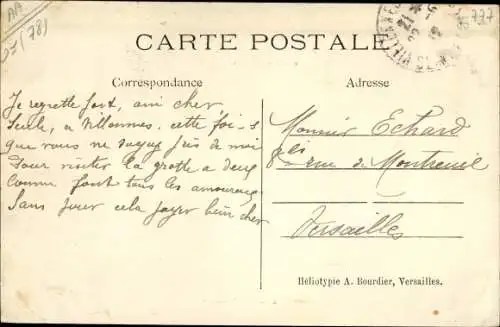 AA
J (78)
737
CARTE POSTALE
Correspondance
Adresse
Je regrette fort, ami cher,
Seule, a Villennes, cette foi-s
Que vous ne soyez près de moi
Pour visiter la grotte a deux
Comme font tous les amoureux
Sans pour cela payer bien cher
Monsieur Echard
rue de Montreuil
Versailles
Héliotypie A. Bourdier, Versailles.